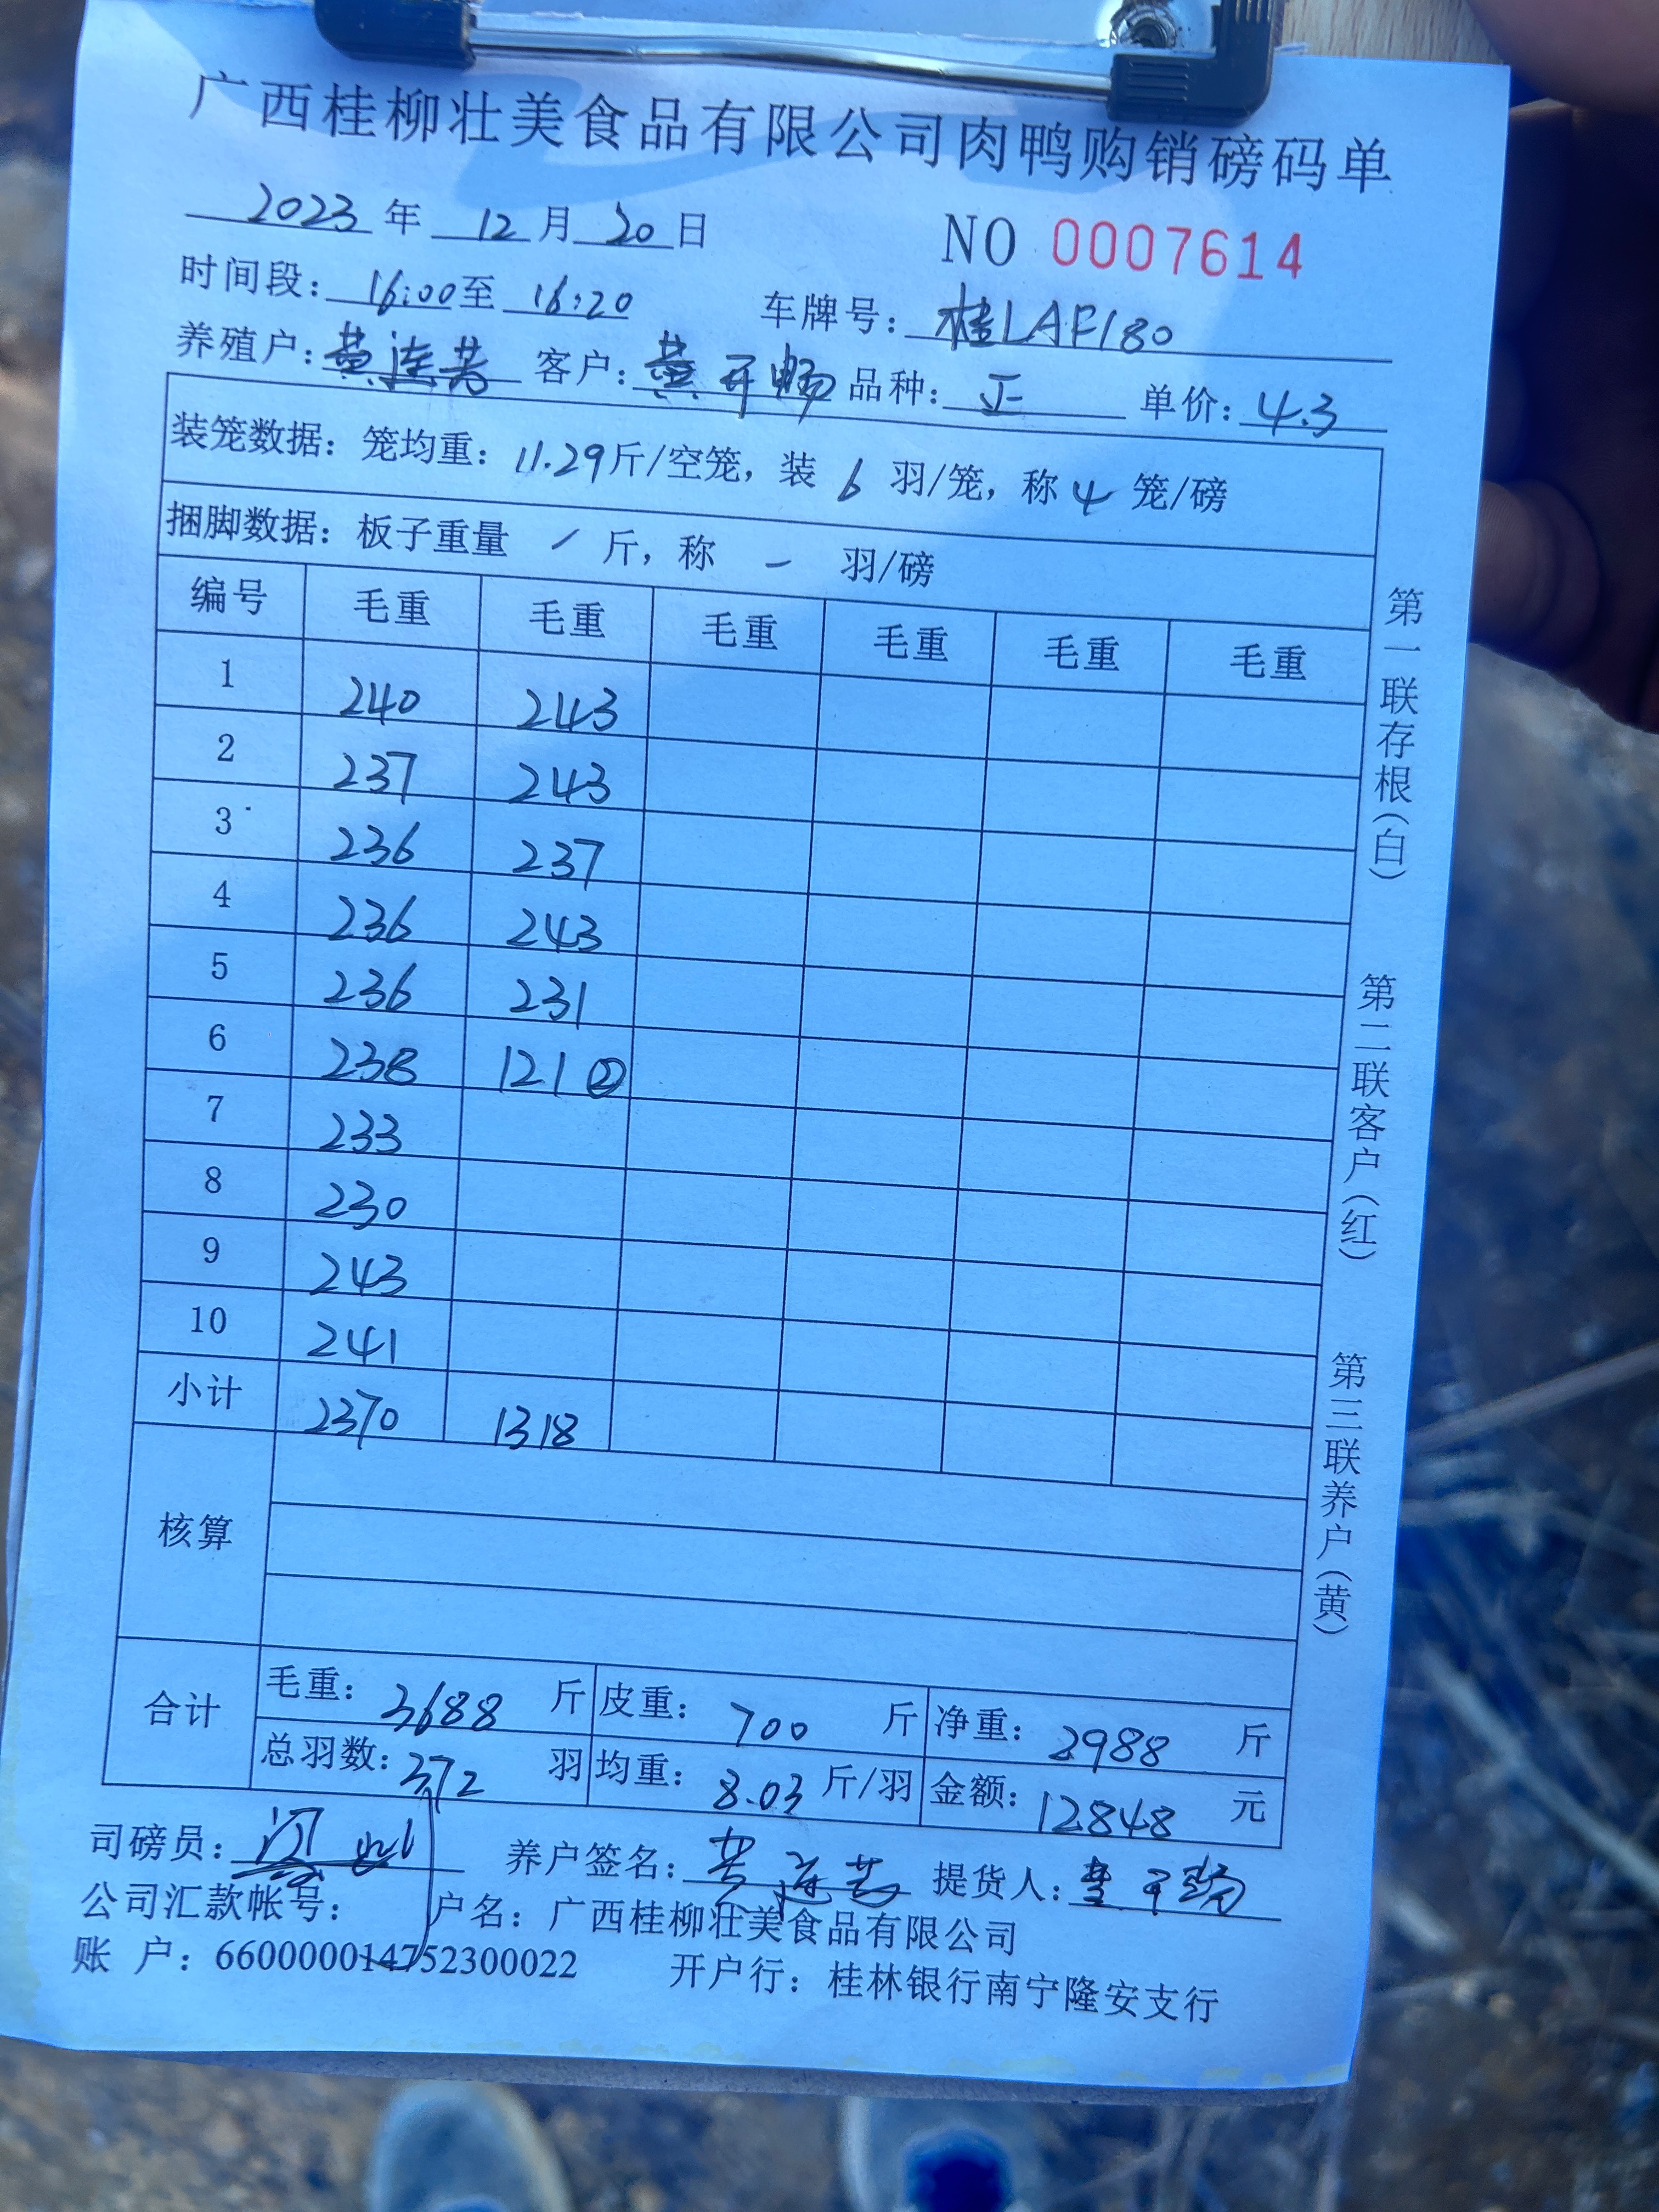 广西桂柳壮美食品有限公司肉鸭购销磅码单
2023年 12月 20日 NO 0007614
时间段：16:00至 16:20 车牌号：桂LAF180
养殖户：黄连芳 客户：黄开畅 品种：正 单价：4.3
装笼数据：笼均重：11.29斤/空笼，装 6 羽/笼，称 4 笼/磅
捆脚数据：板子重量 / 斤，称 - 羽/磅
编号 毛重 毛重 毛重 毛重 毛重 毛重
1 240 243
2 237 243
3 236 237
4 236 243
5 236 231
6 238 121 ②
7 233
8 230
9 243
10 241
小计 2370 1318
核算
合计 毛重：3688 斤 皮重：700 斤 净重：2988 斤
总羽数：372 羽 均重：8.03 斤/羽 金额：12848 元
司磅员： 养户签名：黄连芳 提货人：黄开畅
公司汇款帐号： 户名：广西桂柳壮美食品有限公司
账 户：660000014752300022 开户行：桂林银行南宁隆安支行
第一联存根（白）
第二联客户（红）
第三联养户（黄）